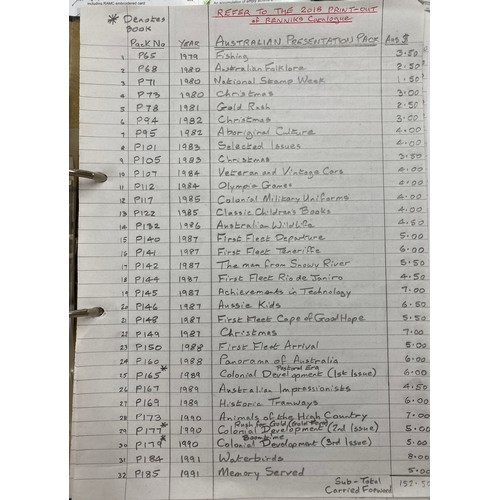 REFER TO THE 2018 PRINT-OUT
of RENNIKS Catalogue
* Denotes
Book
PACK NO YEAR AUSTRALIAN PRESENTATION PACK Aus $
1 P65 1979 Fishing 3.50
2 P68 1980 Australian Folklore 2.50
3 P71 1980 National Stamp Week 1.50
4 P73 1980 Christmas 3.00
5 P78 1981 Gold Rush 2.50
6 P94 1982 Christmas 3.00
7 P95 1982 Aboriginal Culture 4.00
8 P101 1983 Selected Issues 4.00
9 P105 1983 Christmas 3.50
10 P107 1984 Veteran and Vintage Cars 4.00
11 P112 1984 Olympic Games 4.00
12 P117 1985 Colonial Military Uniforms 4.00
13 P122 1985 Classic Children's Books 4.00
14 P132 1986 Australian Wildlife 4.50
15 P140 1987 First Fleet Departure 5.00
16 P141 1987 First Fleet Teneriffe 6.00
17 P142 1987 The man from Snowy River 5.50
18 P144 1987 First Fleet Rio de Janiro 4.50
19 P145 1987 Achievements in Technology 7.00
20 P146 1987 Aussie Kids 6.50
21 P148 1987 First Fleet Cape of Good Hope 5.50
22 P149 1987 Christmas 7.00
23 P150 1988 First Fleet Arrival 5.00
24 P160 1988 Panorama of Australia 6.00
Pastoral Era
25 P165* 1989 Colonial Development (1st Issue) 6.00
26 P167 1989 Australian Impressionists 4.50
27 P169 1989 Historic Tramways 6.00
28 P173 1990 Animals of the High Country 7.00
Rush for Gold
29 P177* 1990 Colonial Development (2nd Issue) 5.00
Boomtime
30 P179* 1990 Colonial Development (3rd Issue) 5.00
31 P184 1991 Waterbirds 8.00
32 P185 1991 Memory Served 5.00
Sub-Total
Carried Forward 152.50